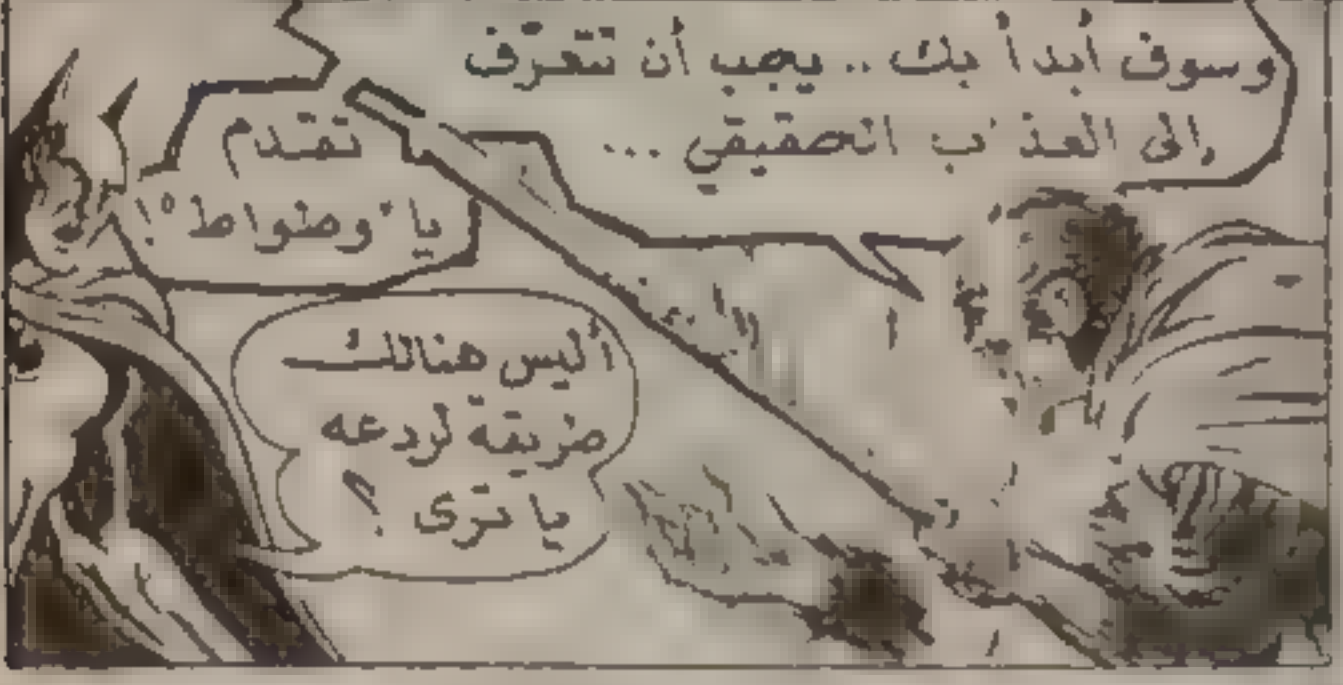 وسوف أبدأ بك .. يجب أن تتعرّف
إلى العذاب الحقيقي ...
تقدم
يا "وطواط"!
أليس هنالك
طريقة لردعه
يا ترى ؟